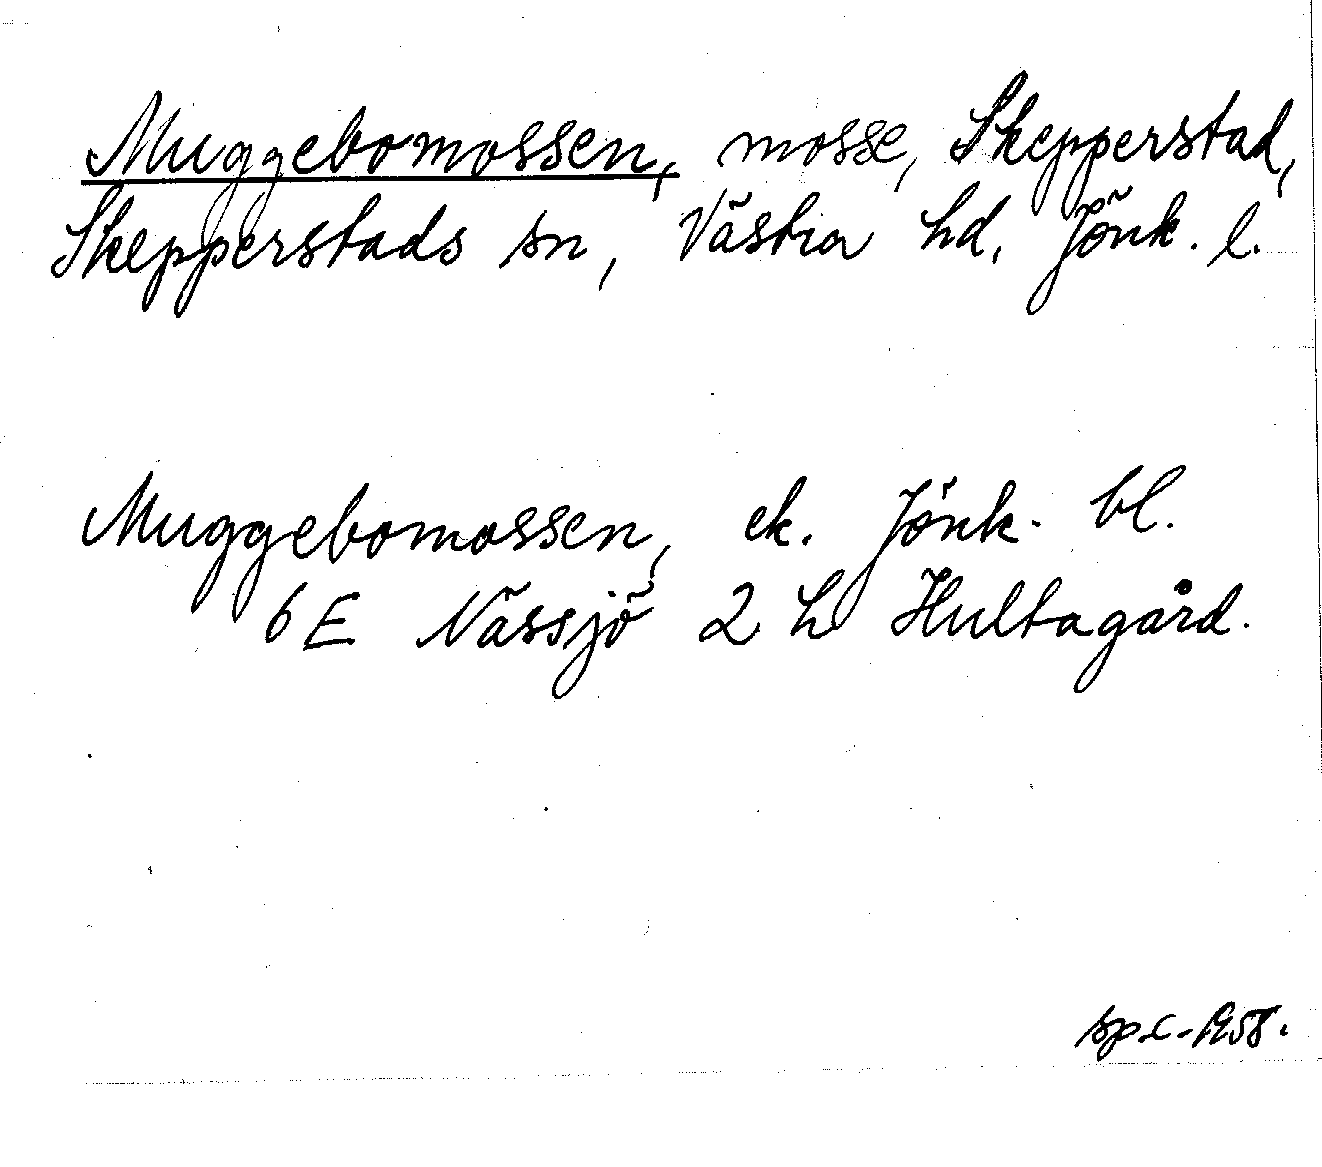 Muggebomossen, mosse, Skepperstad,
Skepperstads sn, Västra hd, Jönk. l.
Muggebomossen, ek. Jönk. bl.
6 E Nässjö 2 h Hultagård.
sp.c. 1958.